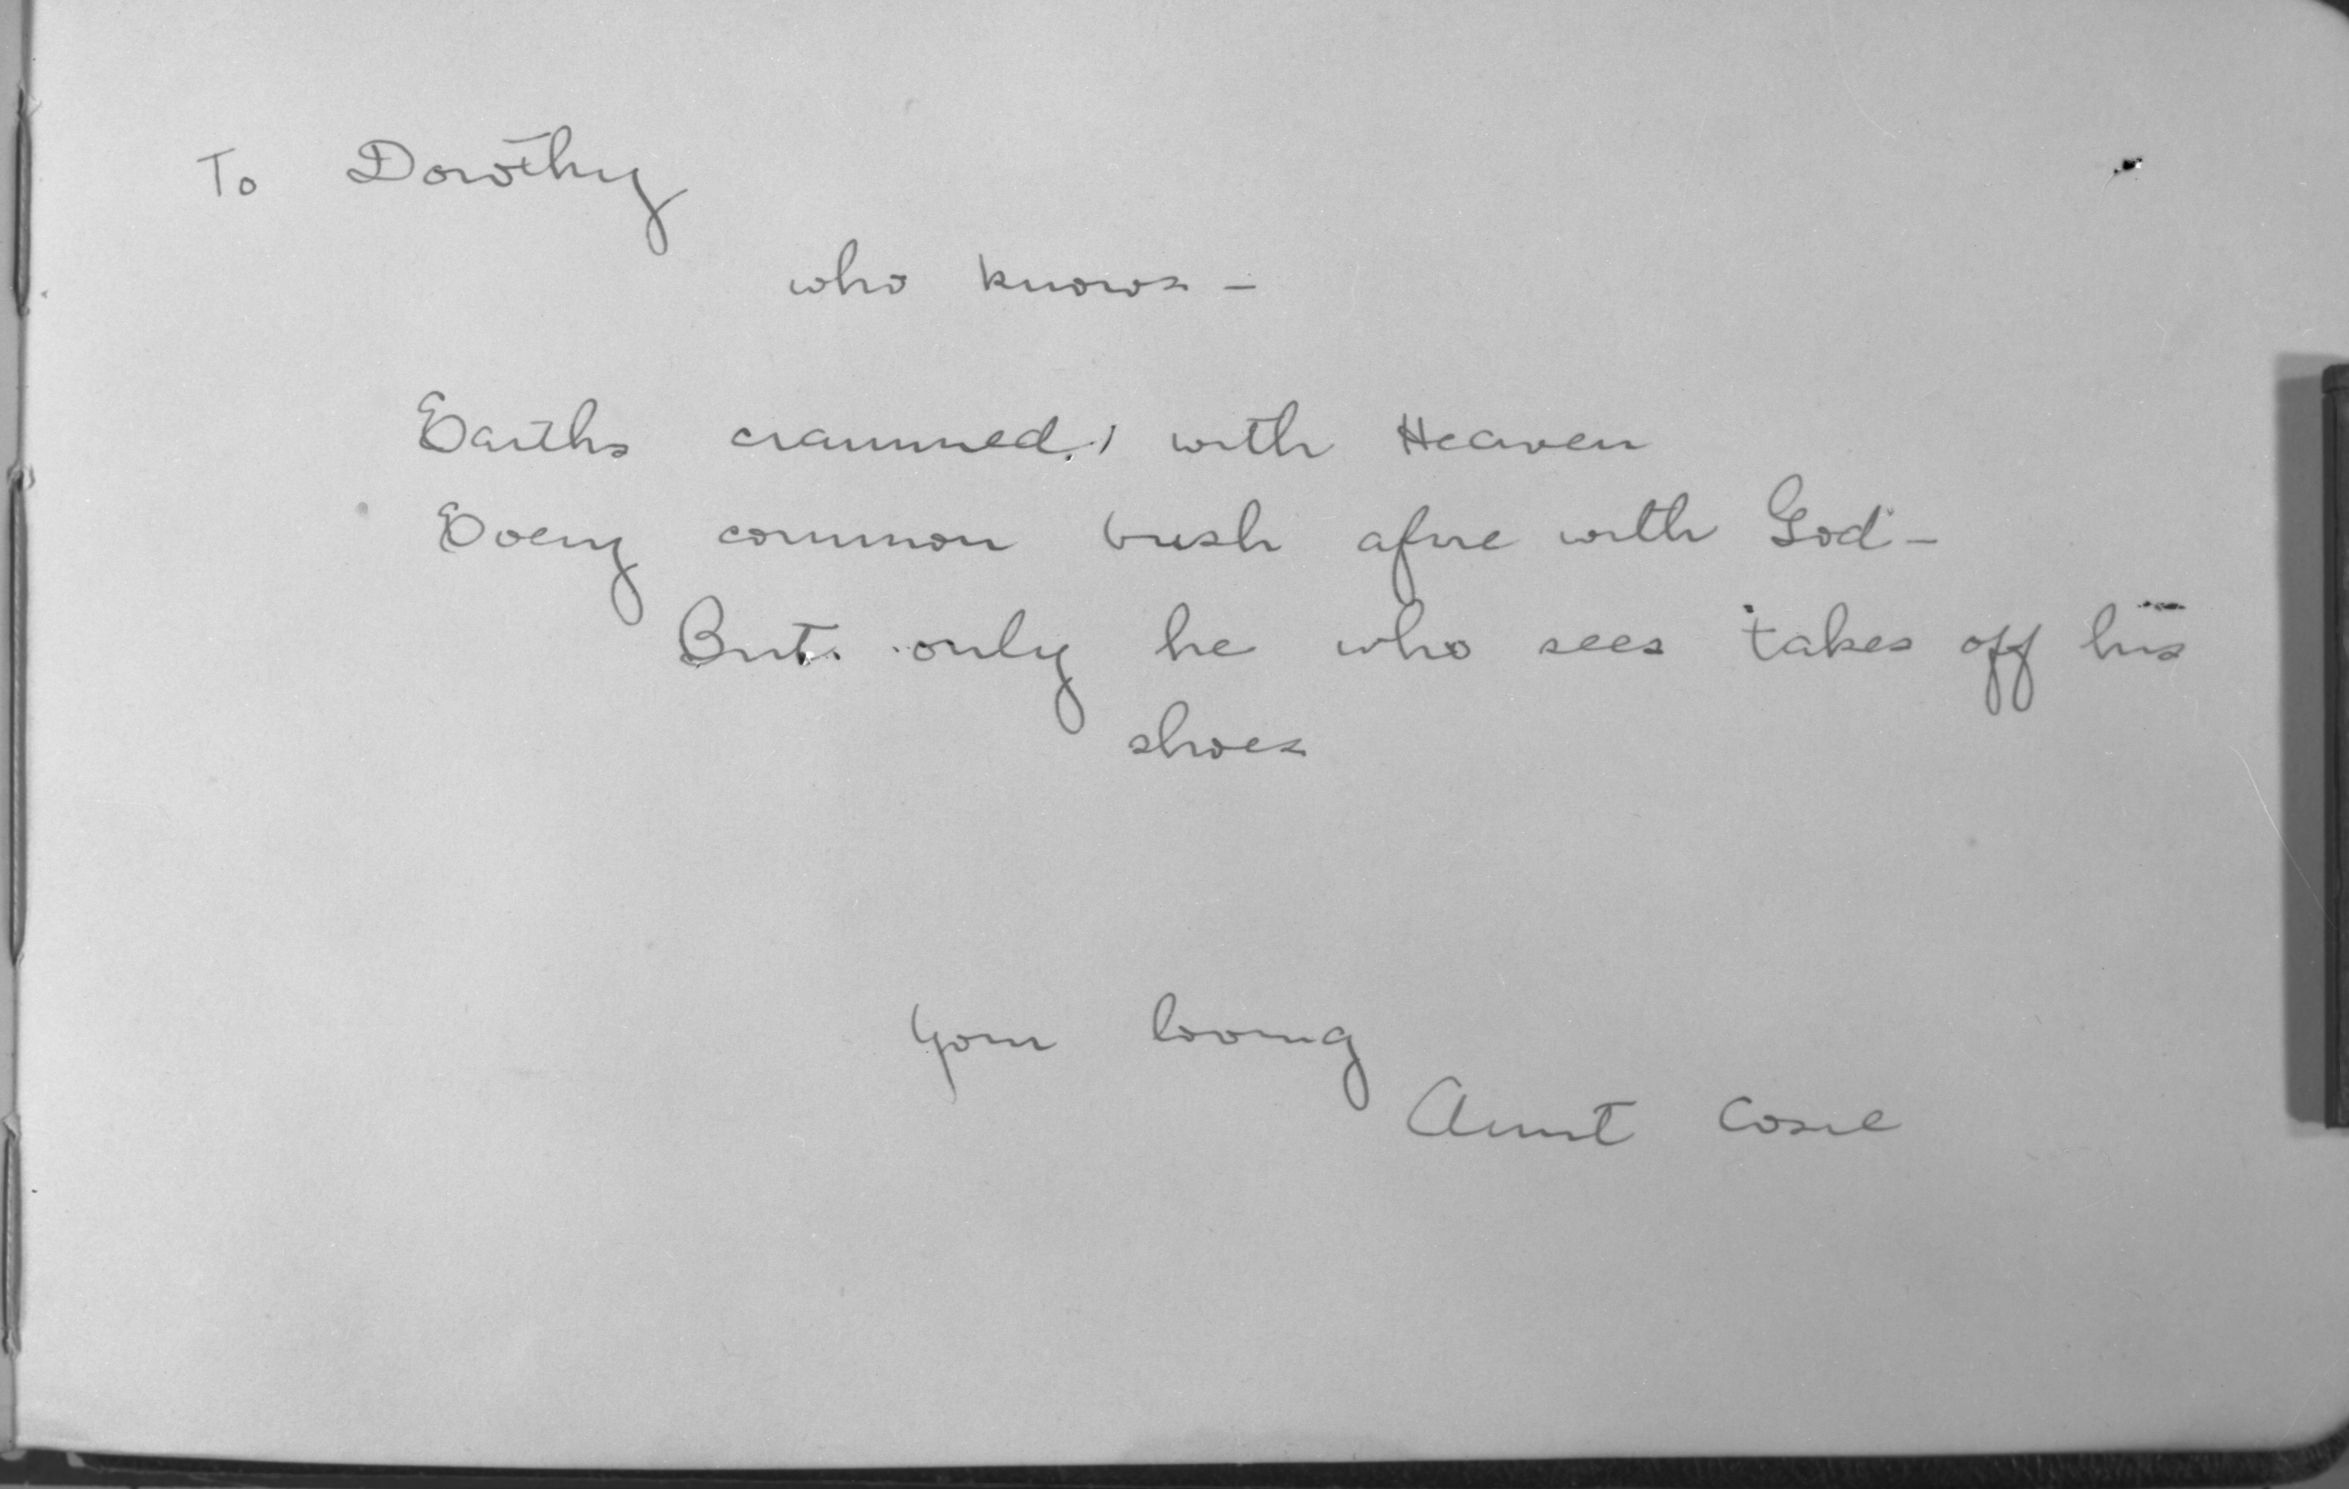 To Dorothy
who knows –
Earths crammed, with Heaven
Every common bush afire with God –
But only he who sees takes off his
shoes
Your loving
Aunt Cosie